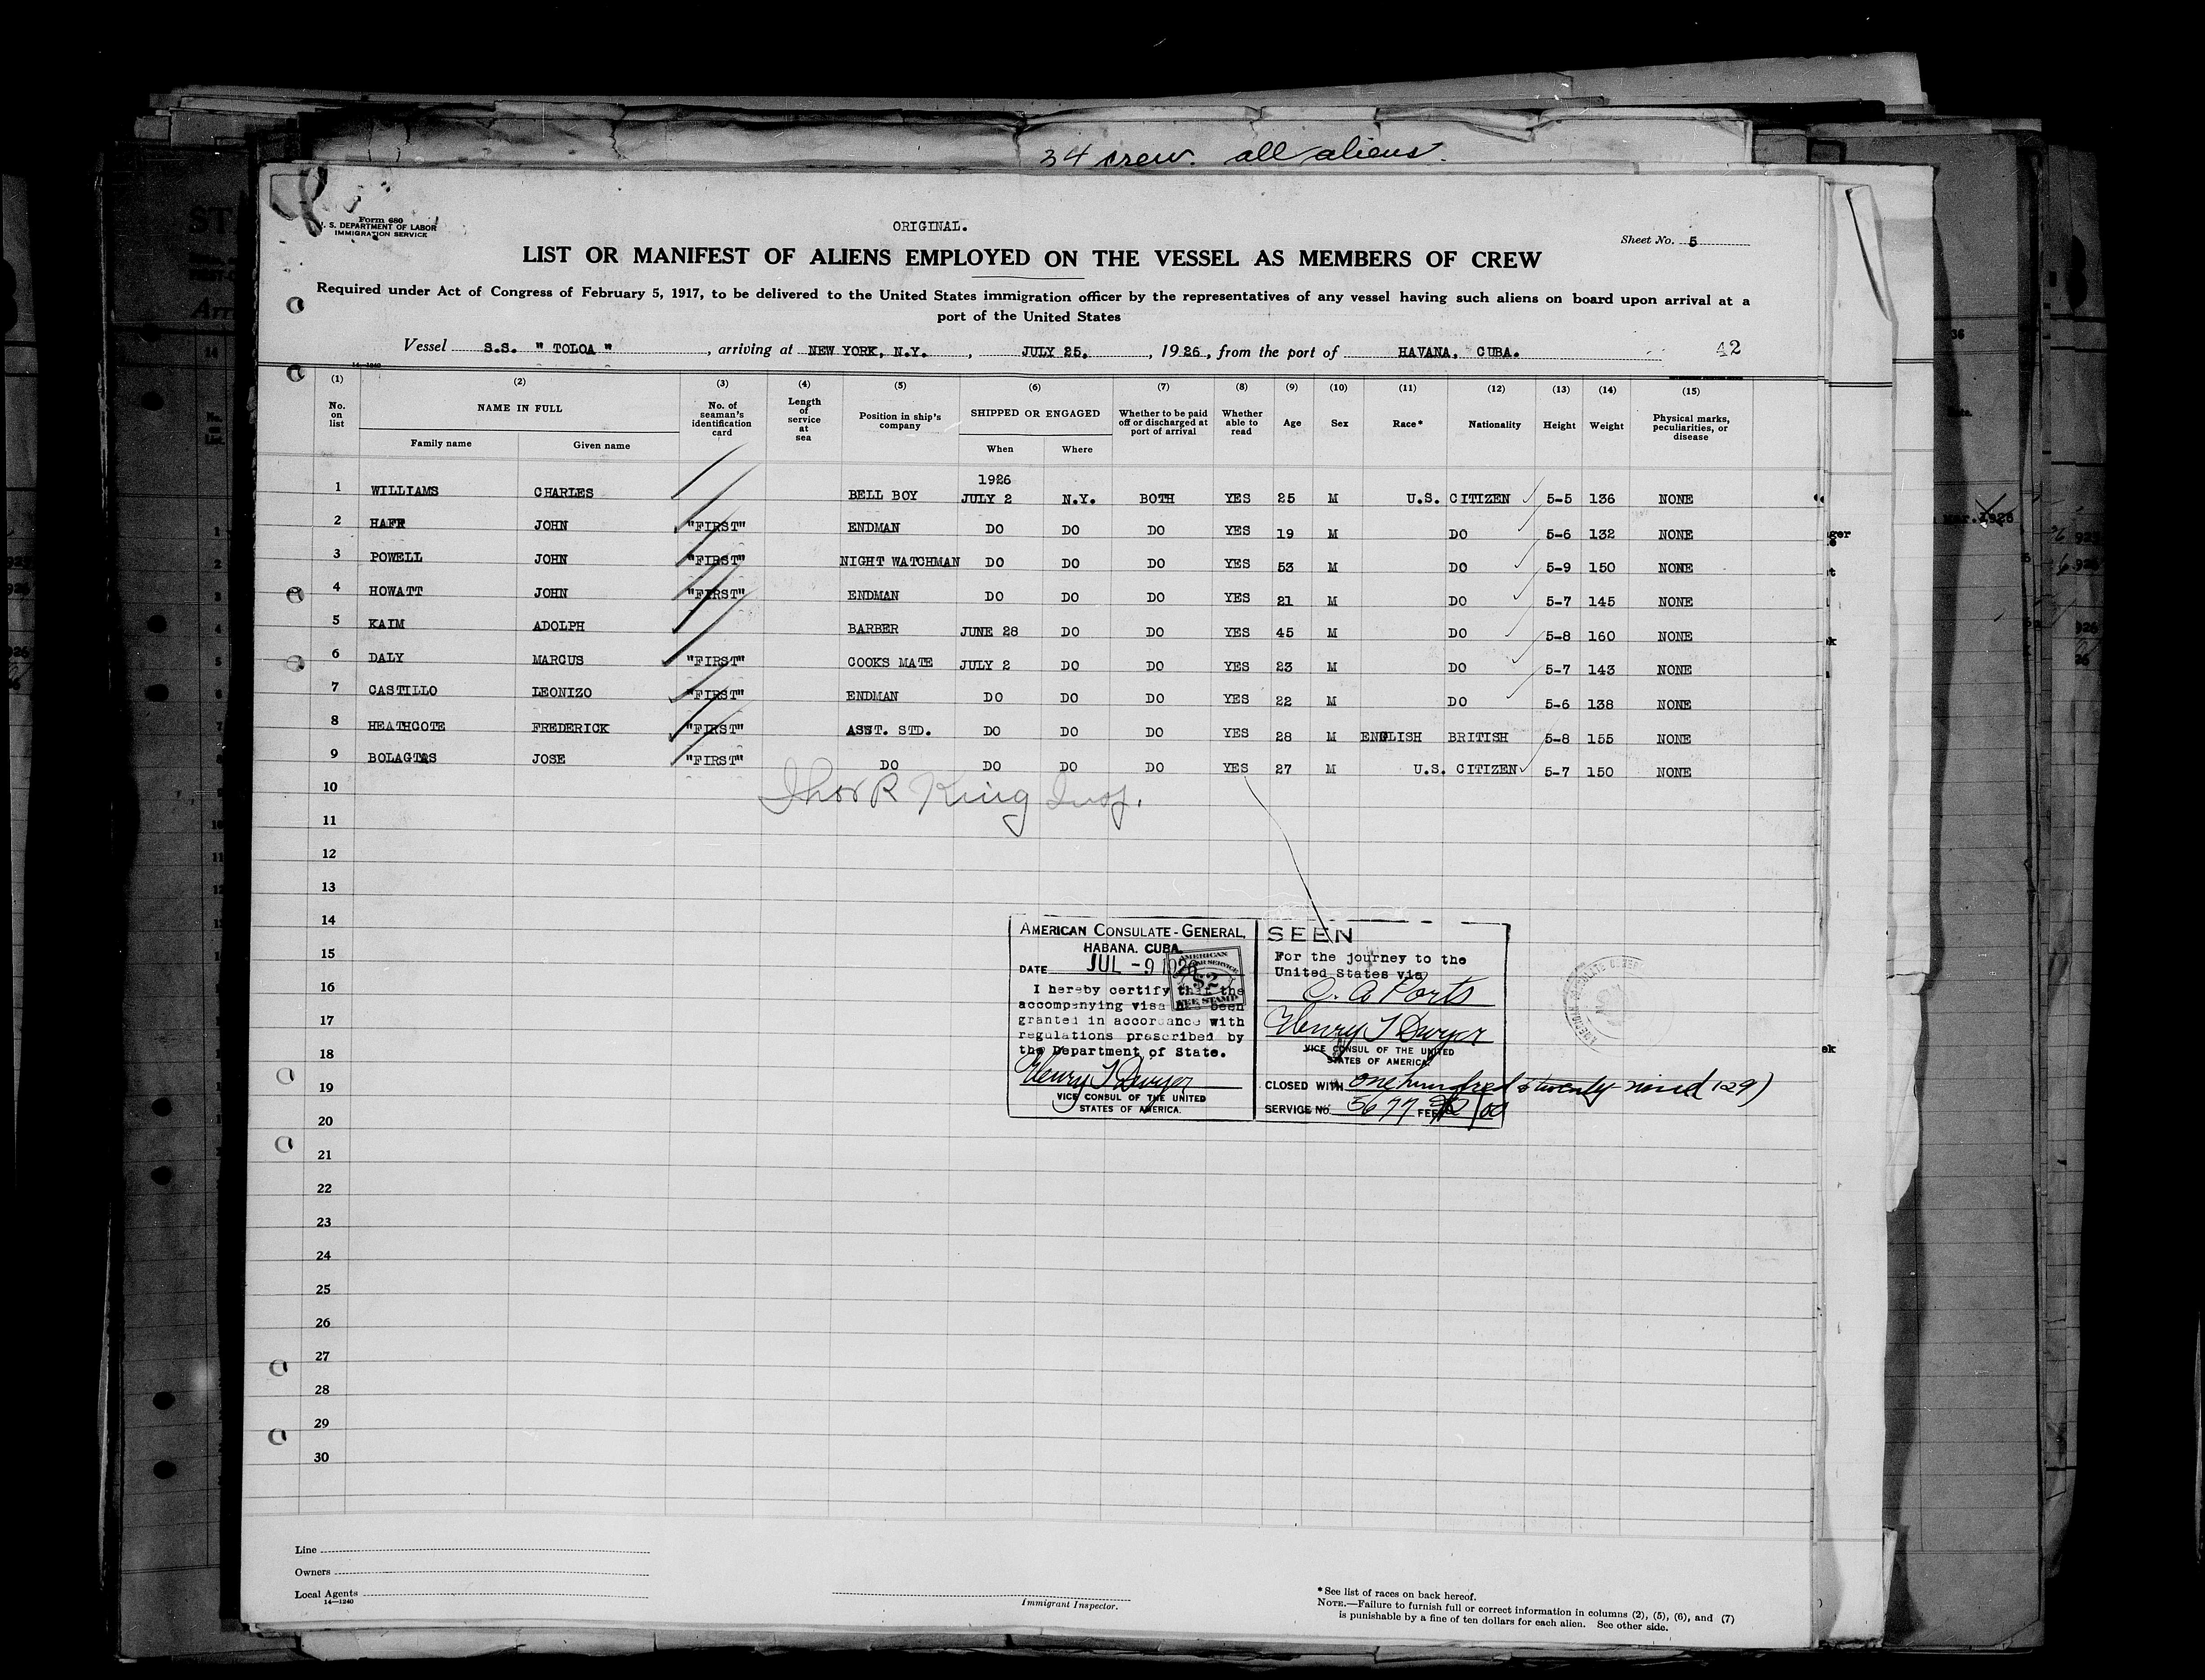 34 crew. all aliens.
Form 680
U. S. DEPARTMENT OF LABOR
IMMIGRATION SERVICE
ORIGINAL.
Sheet No. 5
LIST OR MANIFEST OF ALIENS EMPLOYED ON THE VESSEL AS MEMBERS OF CREW
Required under Act of Congress of February 5, 1917, to be delivered to the United States immigration officer by the representatives of any vessel having such aliens on board upon arrival at a
port of the United States
Vessel S.S. " TOLOA " , arriving at NEW YORK, N.Y. , JULY 25. , 1926, from the port of HAVANA, CUBA. 42
14—1240
(1) (2) (3) (4) (5) (6) (7) (8) (9) (10) (11) (12) (13) (14) (15)
No. on list NAME IN FULL Family name Given name No. of seaman's identification card Length of service at sea Position in ship's company SHIPPED OR ENGAGED When Where Whether to be paid off or discharged at port of arrival Whether able to read Age Sex Race* Nationality Height Weight Physical marks, peculiarities, or disease
1926
1 WILLIAMS CHARLES BELL BOY JULY 2 N.Y. BOTH YES 25 M U.S. CITIZEN 5-5 136 NONE
2 HAFF JOHN "FIRST" ENDMAN DO DO DO YES 19 M DO 5-6 132 NONE
3 POWELL JOHN "FIRST" NIGHT WATCHMAN DO DO DO YES 53 M DO 5-9 150 NONE
4 HOWATT JOHN "FIRST" ENDMAN DO DO DO YES 21 M DO 5-7 145 NONE
5 KAIM ADOLPH BARBER JUNE 28 DO DO YES 45 M DO 5-8 160 NONE
6 DALY MARCUS "FIRST" COOKS MATE JULY 2 DO DO YES 23 M DO 5-7 143 NONE
7 CASTILLO LEONIZO "FIRST" ENDMAN DO DO DO YES 22 M DO 5-6 138 NONE
8 HEATHCOTE FREDERICK "FIRST" ASST. STD. DO DO DO YES 28 M ENGLISH BRITISH 5-8 155 NONE
9 JOSE "FIRST" DO DO DO DO YES 27 M U.S. CITIZEN 5-7 150 NONE
10
R King Insp.
11
12
13
14
15
16
17
18
19
20
21
22
23
24
25
26
27
28
29
30
AMERICAN CONSULATE-GENERAL,
HABANA. CUBA.
DATE JUL -9 1926
I hereby certify that the
accompanying visa has been
granted in accordance with
regulations prescribed by
the Department of State.
Henry T Dwyer
VICE CONSUL OF THE UNITED
STATES OF AMERICA.
AMERICAN
$2
FEE STAMP
SEEN
For the journey to the
United States via
Ports
Henry T Dwyer
VICE CONSUL OF THE UNITED
STATES OF AMERICA
CLOSED WITH one hundred & twenty nine (129)
SERVICE No. 5677 FEE $2/00
Line
Owners
Local Agents
14—1240
Immigrant Inspector.
*See list of races on back hereof.
NOTE.—Failure to furnish full or correct information in columns (2), (5), (6), and (7)
is punishable by a fine of ten dollars for each alien. See other side.